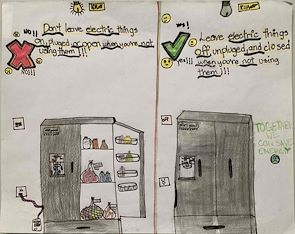 NO!!
Don't leave electric things
on, plugged, or open when you're not
using them!!!
NO!!!
yes!
Leave electric things
off, unplugged, and closed
when you're not using
them!!!
yes!!!
TOGETHER
WE
CAN SAVE
ENERGY